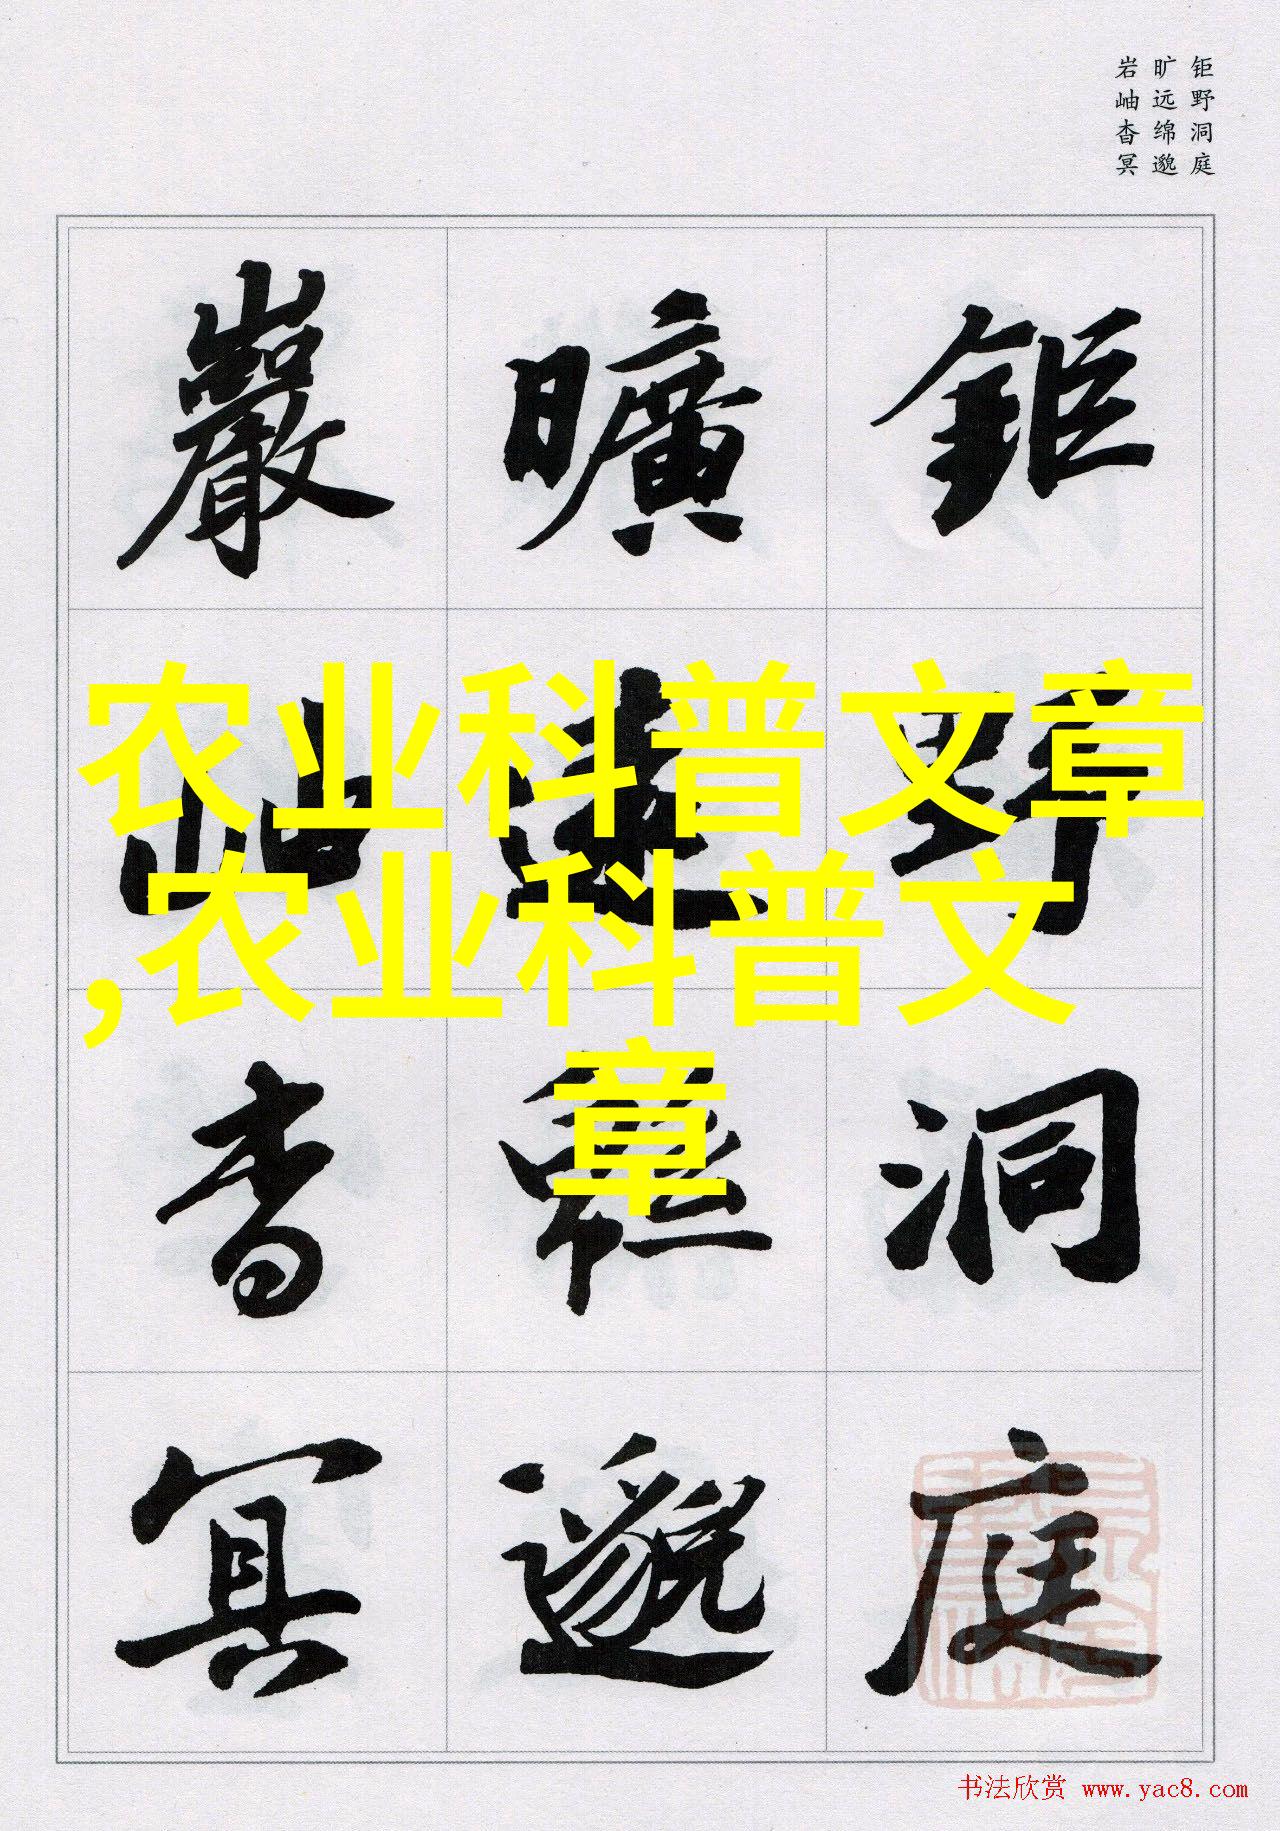 钜野洞庭
旷远绵邈
岩岫杳冥
鉅野洞庭
曠遠緜邈
巖岫杳冥
农业科普文章
,农业科普文
章
书法欣赏 www.yac8.com